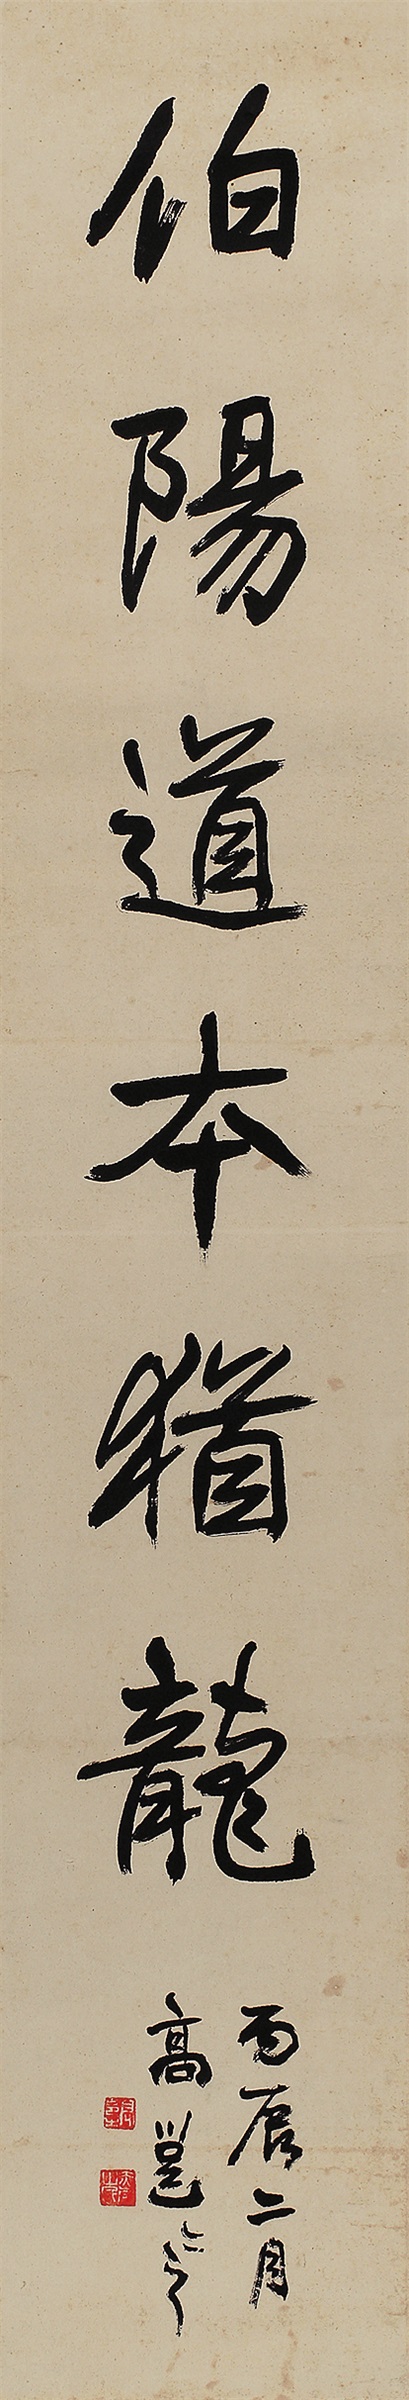 伯陽道本猶龍
丙辰二月
高邕